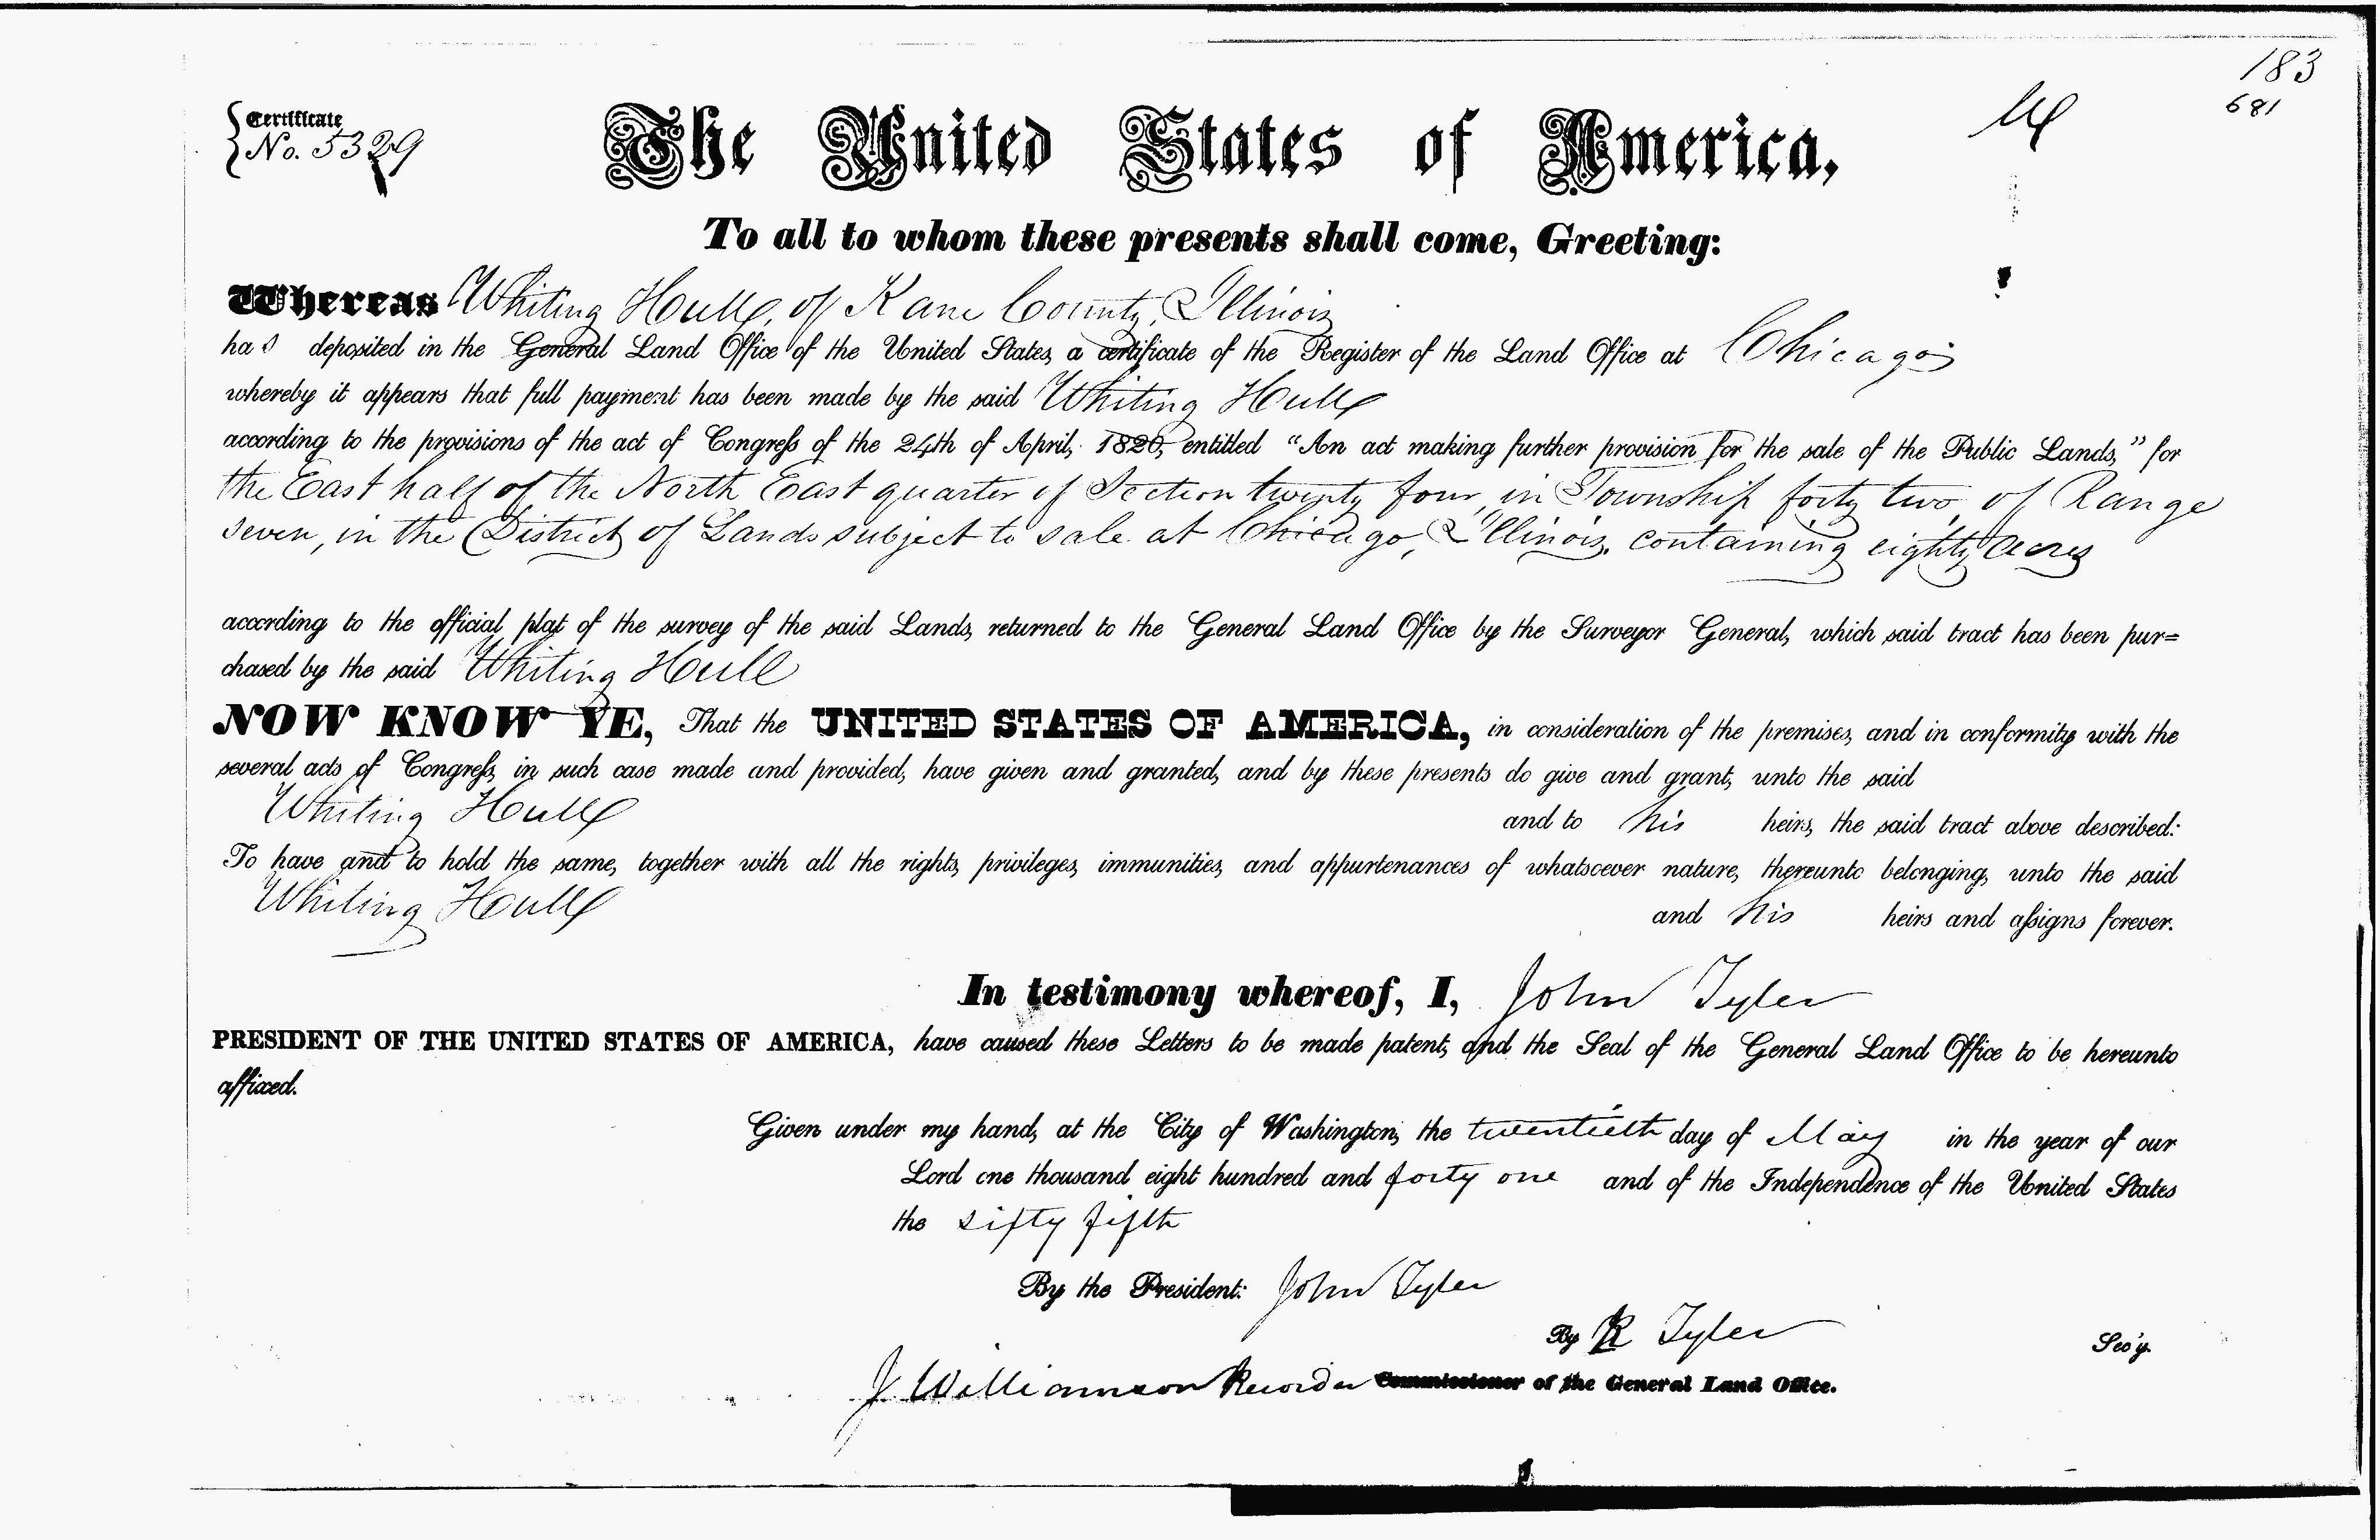 183
681
Certificate
No. 5329
The United States of America,
To all to whom these presents shall come, Greeting:
Whereas Whiting Hull, of Kane County, Illinois
has deposited in the General Land Office of the United States, a certificate of the Register of the Land Office at Chicago
whereby it appears that full payment has been made by the said Whiting Hull
according to the provisions of the act of Congress of the 24th of April, 1820, entitled "An act making further provision for the sale of the Public Lands," for
the East half of the North East quarter of Section twenty four, in Township forty two, of Range
seven, in the District of Lands subject to sale at Chicago, Illinois, containing eighty acres
according to the official plat of the survey of the said Lands, returned to the General Land Office by the Surveyor General, which said tract has been pur=
chased by the said Whiting Hull
NOW KNOW YE, That the UNITED STATES OF AMERICA, in consideration of the premises, and in conformity with the
several acts of Congress, in such case made and provided, have given and granted, and by these presents do give and grant, unto the said
Whiting Hull and to his heirs, the said tract above described:
To have and to hold the same, together with all the rights, privileges, immunities, and appurtenances of whatsoever nature, thereunto belonging, unto the said
Whiting Hull and his heirs and assigns forever.
In testimony whereof, I, John Tyler
PRESIDENT OF THE UNITED STATES OF AMERICA, have caused these Letters to be made patent, and the Seal of the General Land Office to be hereunto
affixed.
Given under my hand, at the City of Washington, the twentieth day of May in the year of our
Lord one thousand eight hundred and forty one and of the Independence of the United States
the sixty fifth
By the President: John Tyler
By R Tyler Sec'y.
J. Williamson Recorder Commissioner of the General Land Office.